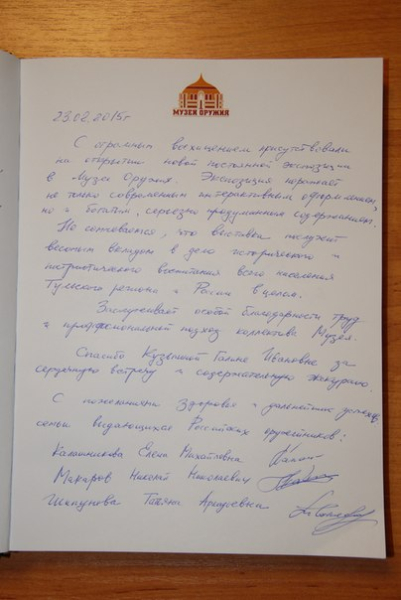 МУЗЕЙ ОРУЖИЯ
23.02.2015г
С огромным восхищением присутствовали
на открытии новой постоянной экспозиции
в Музее Оружия. Экспозиция поражает
не только современным интерактивным оформлением,
но и богатым, серьезно продуманным содержанием.
Не сомневаемся, что выставка послужит
весомым вкладом в дело исторического и
патриотического воспитания всего населения
Тульского региона и России в целом.
Заслуживает особой благодарности труд
и профессиональный подход коллектива Музея.
Спасибо Кузьминой Галине Ивановне за
сердечную встречу и содержательную экскурсию.
С пожеланиями Здоровья и дальнейших успехов,
семьи выдающихся Российских оружейников:
Калашникова Елена Михайловна
Макаров Николай Николаевич
Шпагунова Татьяна Аркадьевна